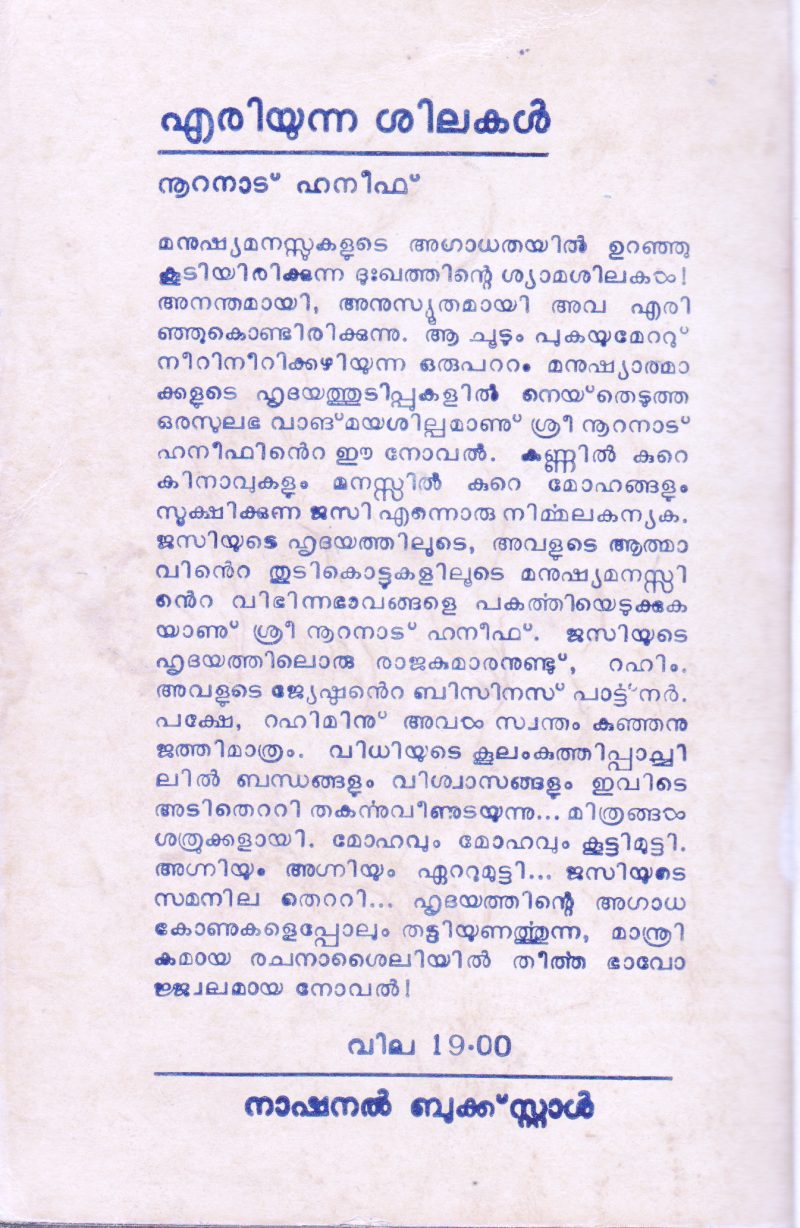 എരിയുന്ന ശിലകൾ
നൂറനാട് ഹനീഫ്
മനുഷ്യമനസ്സുകളുടെ അഗാധതയിൽ ഉറഞ്ഞു
കൂടിയിരിക്കുന്ന ദുഃഖത്തിന്റെ ശ്യാമശിലകൾ!
അനന്തമായി, അനുസ്യൂതമായി അവ എരി
ഞ്ഞുകൊണ്ടിരിക്കുന്നു. ആ ചൂടും പുകയുമേററു്
നീറിനീറിക്കഴിയുന്ന ഒരുപററം മനുഷ്യാത്മാ
ക്കളുടെ ഹൃദയത്തുടിപ്പുകളിൽ നെയ്തെടുത്ത
ഒരസുലഭ വാങ്മയശില്പമാണു് ശ്രീ നൂറനാട്
ഹനീഫിൻെറ ഈ നോവൽ. കണ്ണിൽ കുറെ
കിനാവുകളും മനസ്സിൽ കുറെ മോഹങ്ങളും
സൂക്ഷിക്കുന്ന ജസി എന്നൊരു നിർമ്മലകന്യക.
ജസിയുടെ ഹൃദയത്തിലൂടെ, അവളുടെ ആത്മാ
വിൻെറ തുടികൊട്ടുകളിലൂടെ മനുഷ്യമനസ്സി
ൻെറ വിഭിന്നഭാവങ്ങളെ പകർത്തിയെടുക്കുക
യാണു് ശ്രീ നൂറനാട് ഹനീഫ്. ജസിയുടെ
ഹൃദയത്തിലൊരു രാജകുമാരനുണ്ടു്, റഹിം.
അവളുടെ ജ്യേഷ്ഠൻെറ ബിസിനസ് പാർട്ട്നർ.
പക്ഷേ, റഹിമിനു് അവൾ സ്വന്തം കുഞ്ഞനു
ജത്തിമാത്രം. വിധിയുടെ കൂലംകുത്തിപ്പാച്ചി
ലിൽ ബന്ധങ്ങളും വിശ്വാസങ്ങളും ഇവിടെ
അടിതെററി തകർന്നുവീണുടയുന്നു... മിത്രങ്ങൾ
ശത്രുക്കളായി. മോഹവും മോഹവും കൂട്ടിമുട്ടി.
അഗ്നിയും അഗ്നിയും ഏററുമുട്ടി... ജസിയുടെ
സമനില തെററി... ഹൃദയത്തിന്റെ അഗാധ
കോണുകളെപ്പോലും തട്ടിയുണർത്തുന്ന, മാന്ത്രി
കമായ രചനാശൈലിയിൽ തീർത്ത ഭാവോ
ജ്ജ്വലമായ നോവൽ!
വില 19.00
നാഷനൽ ബുക്ക്സ്റ്റാൾ